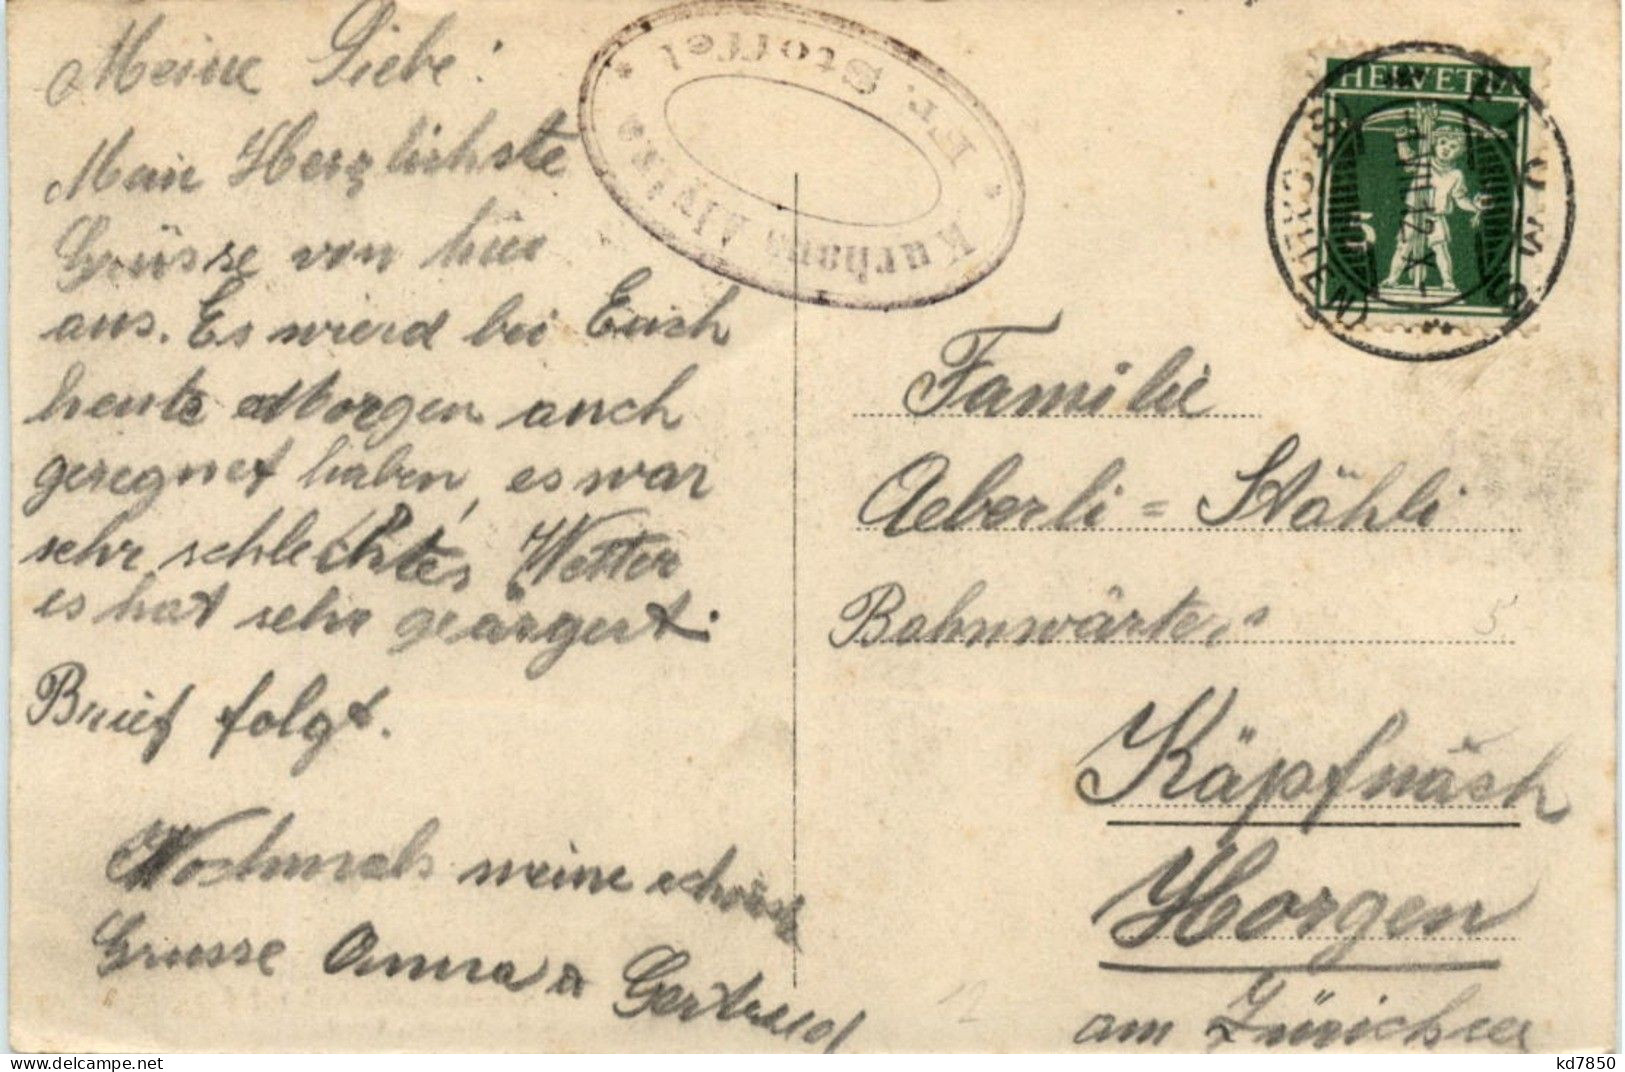 Meine Liebe!
Mein Herzlichste
Grüsse von hier
aus. Es wierd bei Euch
heute Morgen auch
geregnet haben, es war
sehr schlechtes Wetter
es hat sehr geärgert.
Brief folgt.
Nochmals meine schönst
Grüsse Anna & Gertrud
Kurhaus Alvina
Fr. Stoffel
HELVETIA
5
FLUMS
Familie
Aeberli = Stähli
Bahnwärter
5
Käpfnach
Horgen
am Zürichsee
12
kd7850